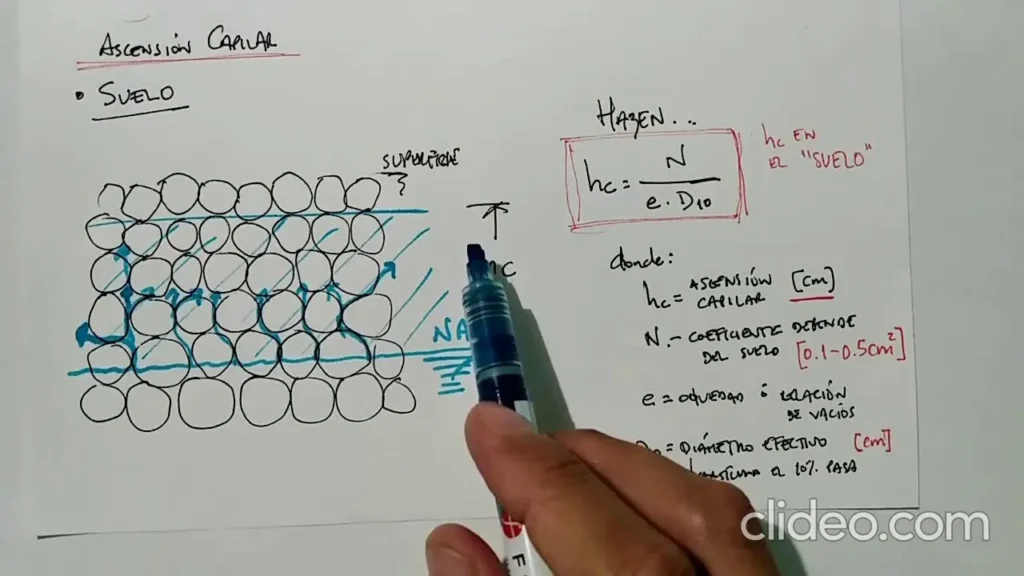 ASCENSIÓN CAPILAR
• SUELO
SUPERFICIE
?
hc
NA
HAZEN...
hc = N / e . D10
hc EN
EL "SUELO"
donde:
hc = ASCENSIÓN CAPILAR [cm]
N.- COEFICIENTE DEPENDE
DEL SUELO [0.1-0.5cm²]
e = OQUEDAD ó RELACIÓN
DE VACIOS
= DIÁMETRO EFECTIVO [cm]
EL 10% PASA
F
clideo.com